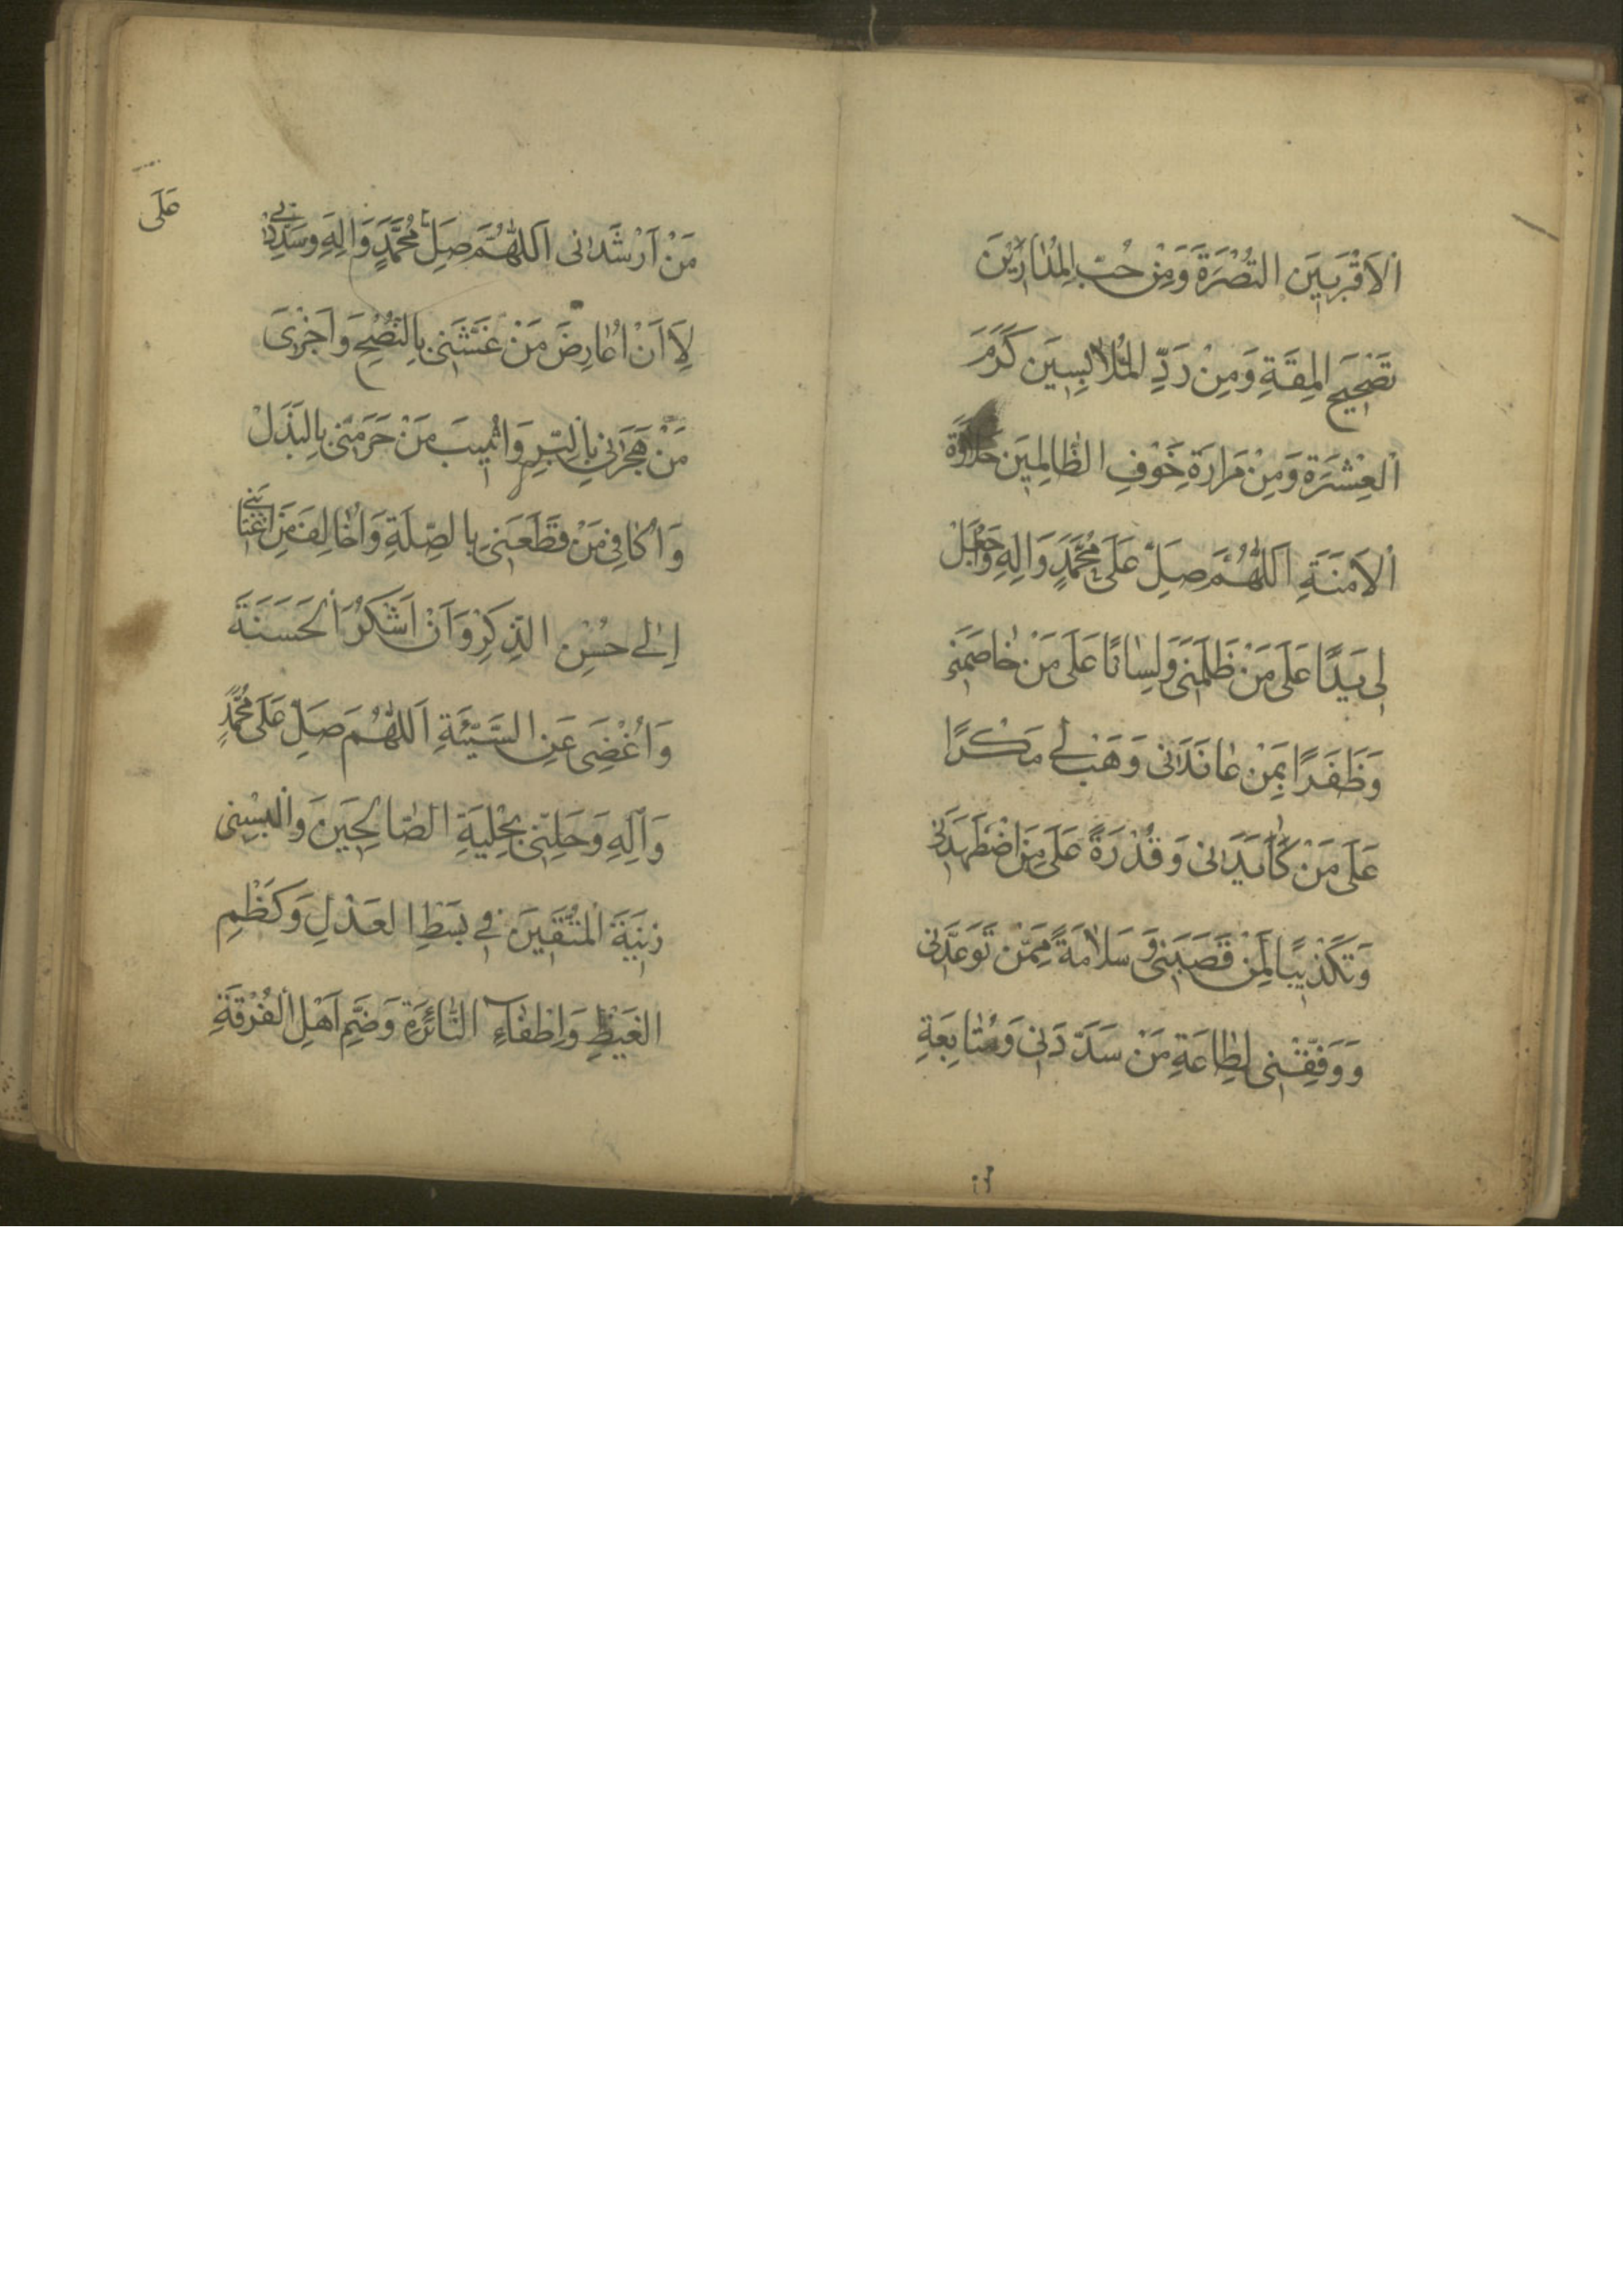 اَلْاَقْرَبينَ النُّصْرَةَ وَمِنْ حُبِّ الْمُدارينَ
تَصْحيحَ الْمِقَةِ وَمِنْ رَدِّ الْمُلابِسينَ كَرَمَ
الْعِشْرَةِ وَمِنْ مَرارَةِ خَوْفِ الظّالِمينَ حَلاوَةَ
الْاَمَنَةِ اَللّهُمَّ صَلِّ عَلى مُحَمَّدٍ وَالِهِ وَاجْعَلْ
لى يَدًا عَلى مَنْ ظَلَمَنى وَلِسانًا عَلى مَنْ خاصَمَنى
وَظَفَرًا بِمَنْ عانَدَنى وَهَبْ لى مَكْرًا
عَلى مَنْ كايَدَنى وَقُدْرَةً عَلى مَنِ اضْطَهَدَنى
وَتَكْذيبًا لِمَنْ قَصَبَنى وَسَلامَةً مِمَّنْ تَوَعَّدَنى
وَوَفِّقْنى لِطاعَةِ مَنْ سَدَّدَنى وَمُتابَعَةِ
مَنْ اَرْشَدَنى اَللّهُمَّ صَلِّ مُحَمَّدٍ وَالِهِ وَسَدِّدْنى
عَلَى
لِاَنْ اُعارِضَ مَنْ غَشَّنى بِالنُّصْحِ وَاَجْزِىَ
مَنْ هَجَرَنى بِالْبِرِّ وَاُثيبَ مَنْ حَرَمَنى بِالْبَذْلِ
وَاُكافِىَ مَنْ قَطَعَنى بِالصِّلَةِ وَاُخالِفَ مَنِ اغْتابَنى
اِلى حُسْنِ الذِّكْرِ وَاَنْ اَشْكُرَ الْحَسَنَةَ
وَاُغْضِىَ عَنِ السَّيِّئَةِ اَللّهُمَّ صَلِّ عَلى مُحَمَّدٍ
وَآلِهِ وَحَلِّنى بِحِلْيَةِ الصّالِحينَ وَاَلْبِسْنى
زينَةَ الْمُتَّقينَ فى بَسْطِ الْعَدْلِ وَكَظْمِ
الْغَيْظِ وَاِطْفاءِ النّائِرَةِ وَضَمِّ اَهْلِ الْفُرْقَةِ